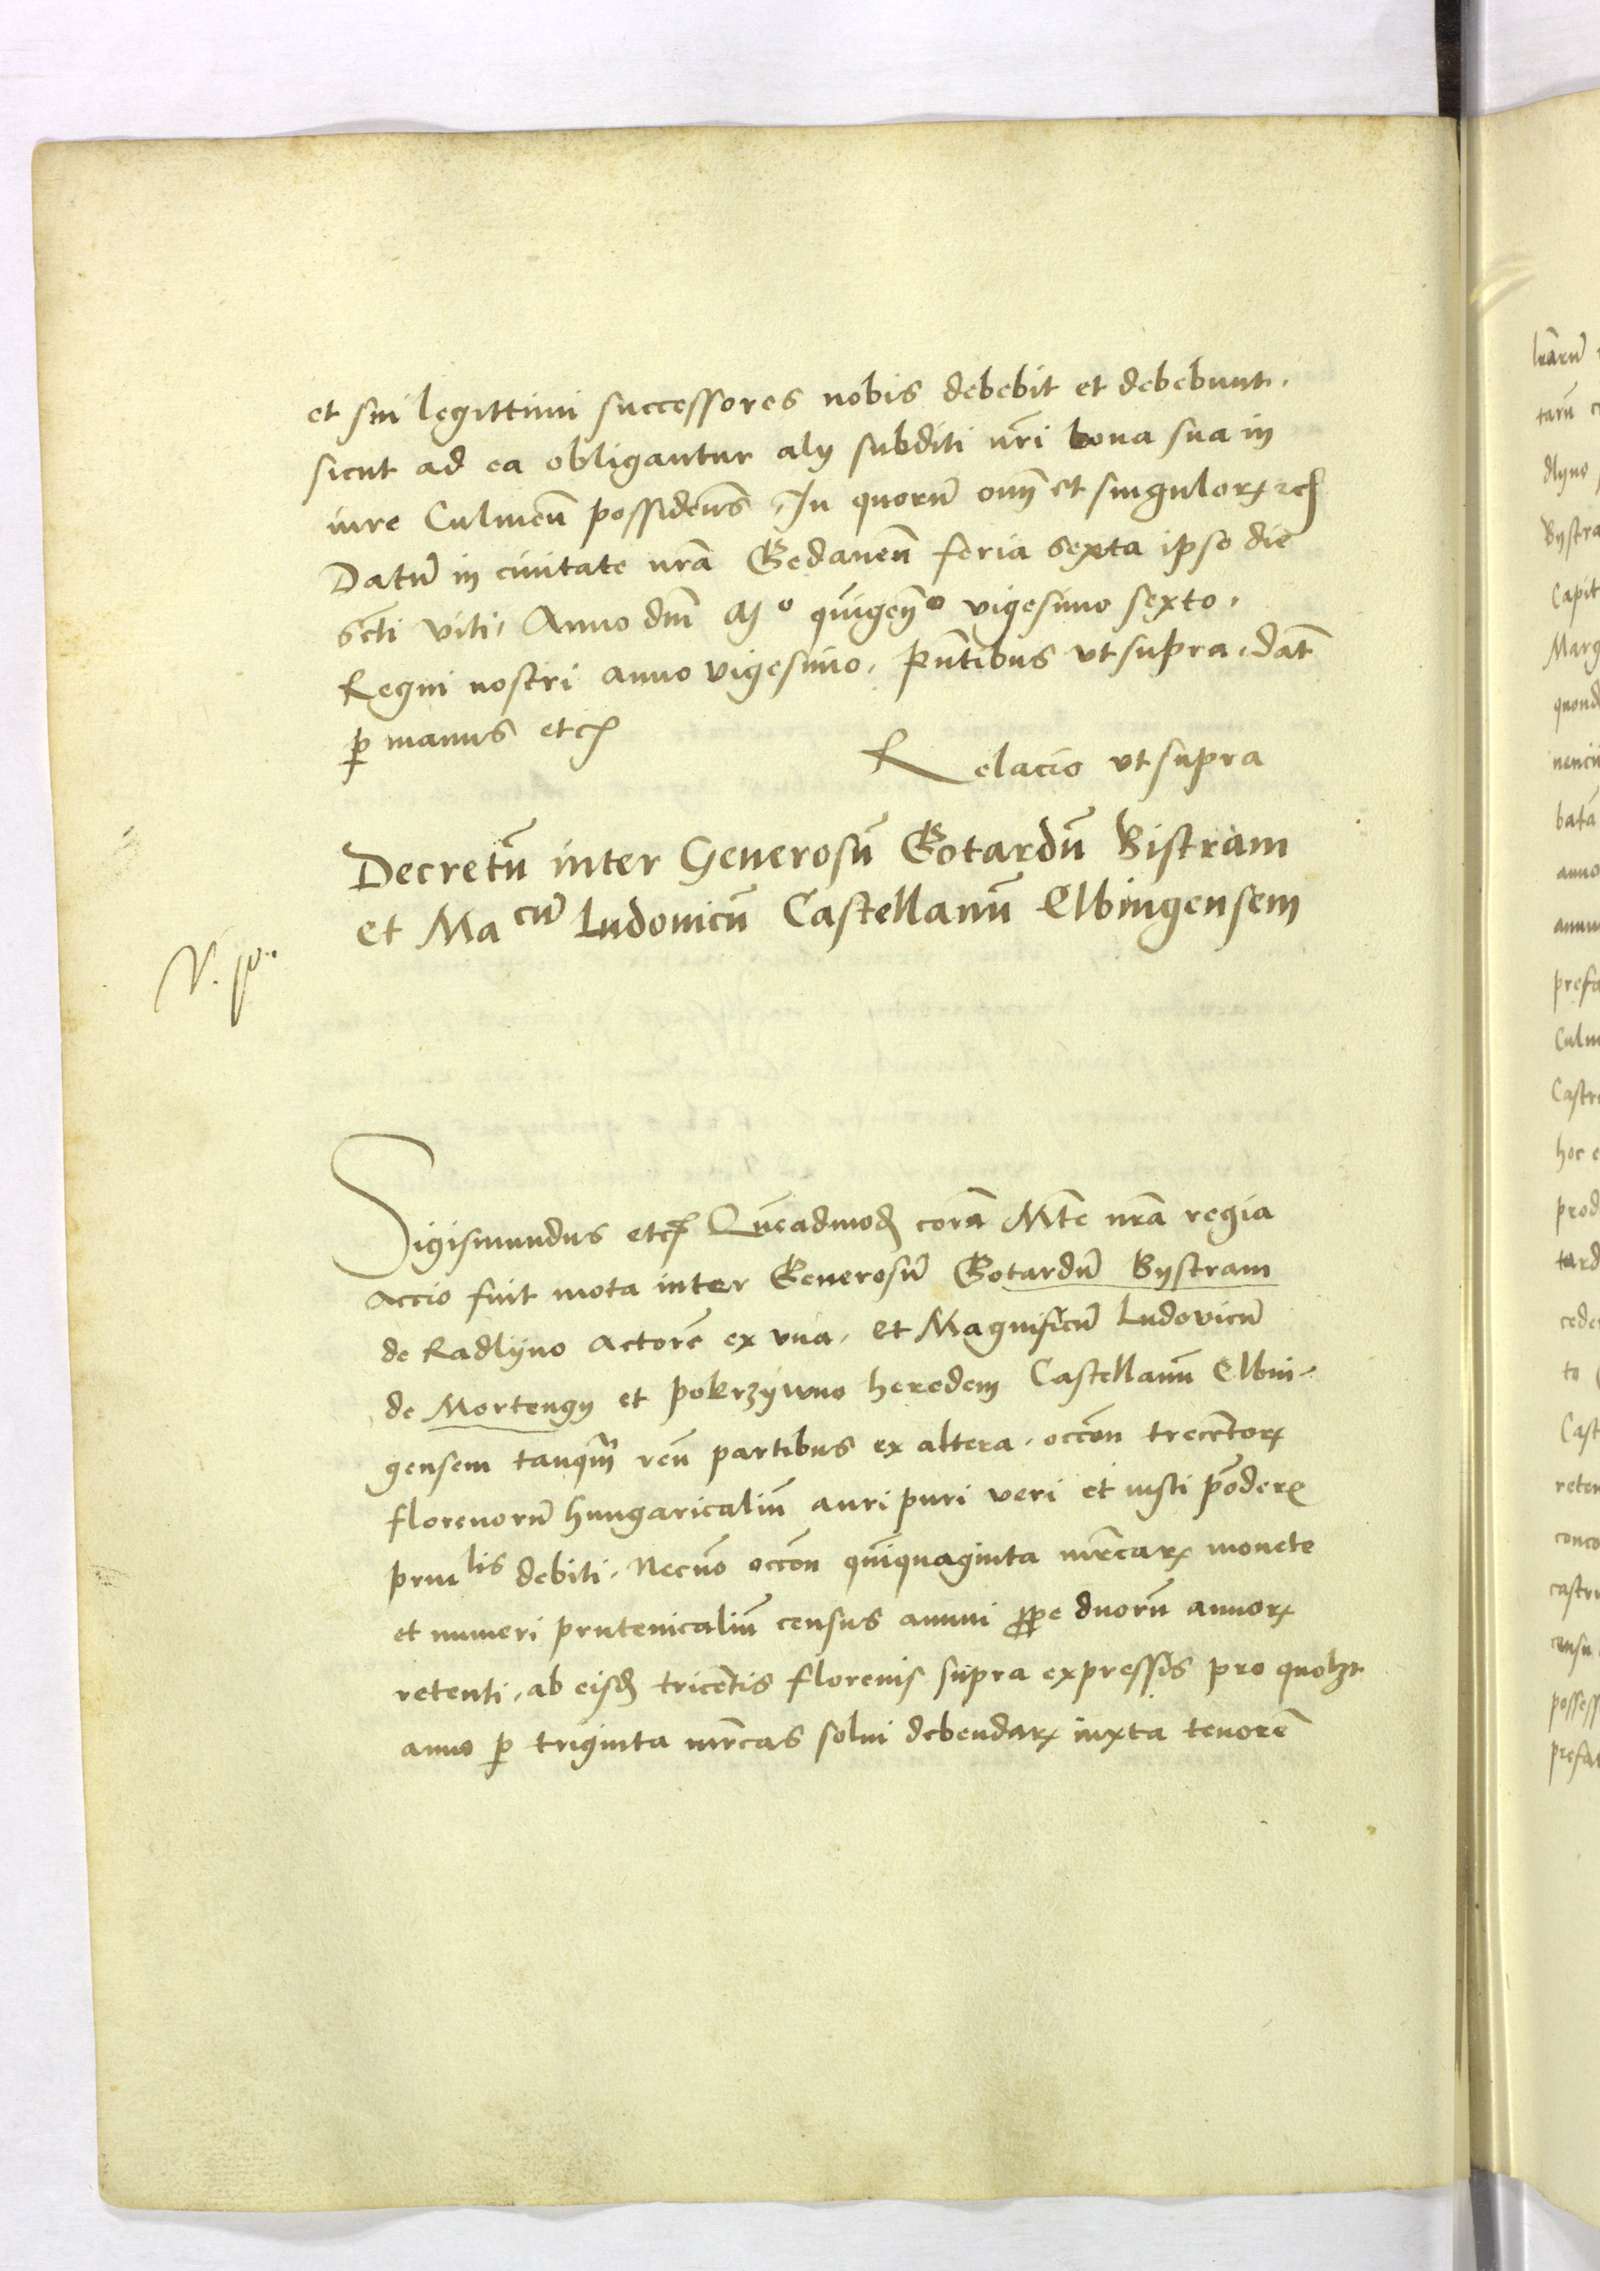 et sui legittimi successores nobis debebit et debebunt.
sicut ad ea obligantur alÿ subditi nr̃i bona sua in
iure Culmeñ possideñs. In quorũ oĩm et singuloꝝ etc̃
Datũ in ciuitate nr̃a Gedaneñ feria sexta ipso die
Sc̃ti Viti, Anno dñi Mº quĩgeñº vigesimo sexto.
Regni nostri anno vigesimo. pñtibus vt supra. dat̃
ꝑ manus etc̃
Relacio vt supra
Decretũ inter Generosũ Gotardũ Bistram
et Ma cũ Ludouicũ Castellanũ Elbingensem
Sigismundus etc̃ Quẽadmoď corã Mt̃e nr̃a regia
accio fuit mota inter Generosũ Gotardũ Bystram
de Radlÿno actorẽ ex vna. et Magnificũ Ludovicũ
de Mortengy et pokrzÿwno heredem Castellanũ Elbin-
gensem tanq̃m reũ partibus ex altera. occõn trecẽtoꝝ
florenorũ hungaricaliũ auri puri veri et iusti põderis
prin lis debiti. Necnõ occõn quĩquaginta mr̃caꝝ monete
et numeri prutenicaliũ census annui ꝓpe duorũ annoꝝ
retenti. ab eisď tricẽtis florenis supra expressis pro quolꝫt
anno ꝑ triginta mr̃cas solui debendaꝝ iuxta tenorẽ
lr̃arũ
tarũ
dlÿno
Bystra
Capit
Marg
quond
nencii
batã
anno
annu
prefa
Culm
Castr
hoc
prod
tard
cede
to
Cast
reten
conco
castru
censu
possess
prefat